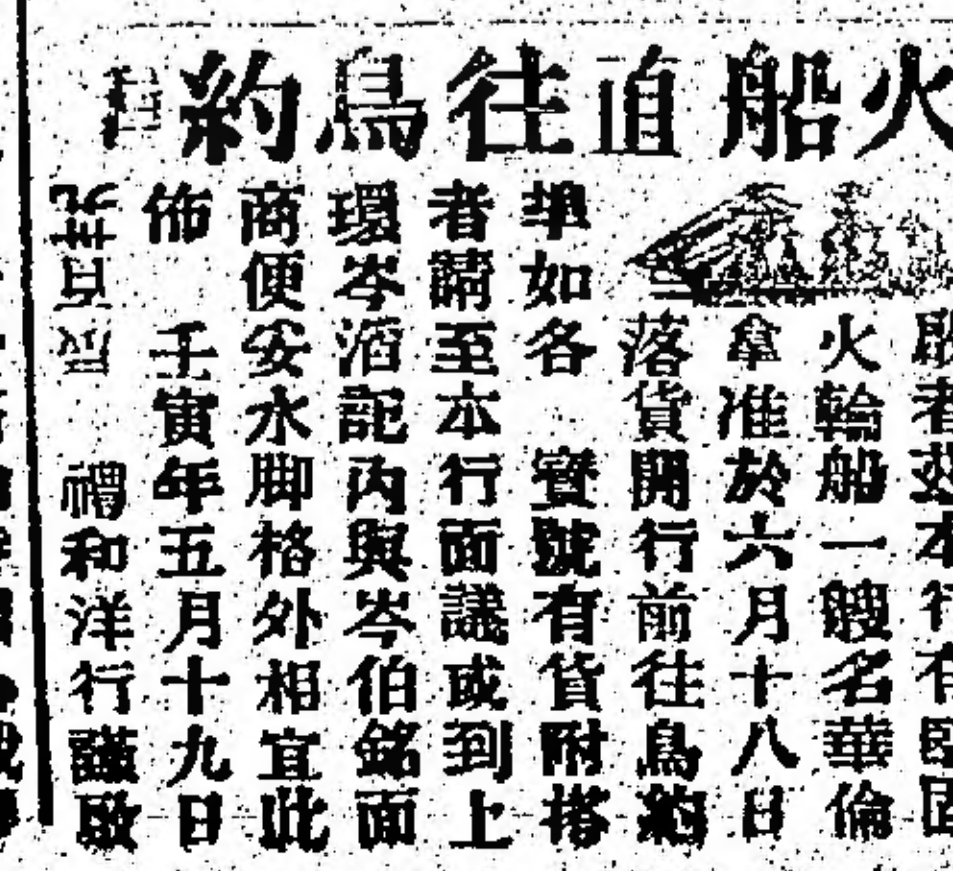 火船直往鳥約
啟者茲本行有
火輪船一艘名華倫
拿准於六月十八日
落貨開行前往鳥約
埠如各 寶號有貨附搭
者請至本行面議或到上
環岑滔記內與岑伯銘面
商便妥水脚格外相宜此
佈 壬寅年五月十九日
禮和洋行謹啟